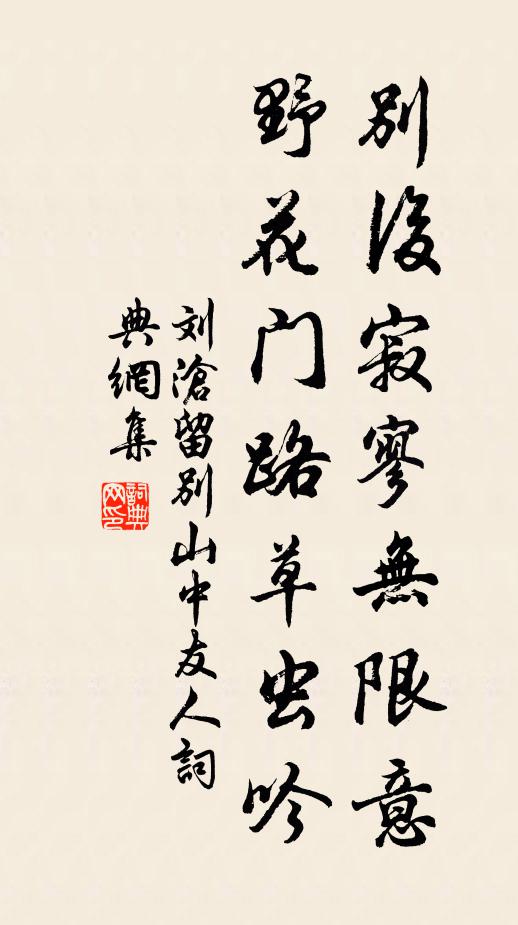 別後寂寥無限意
野花門路草虫吟
刘滄留別山中友人詞
典網集
詞典网印